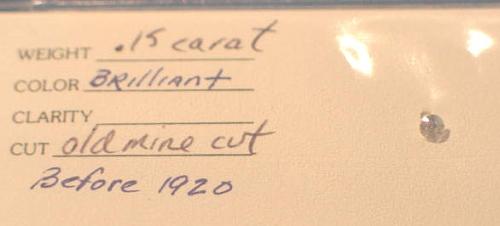 WEIGHT .15 carat
COLOR Brilliant
CLARITY
CUT old mine cut
Before 1920